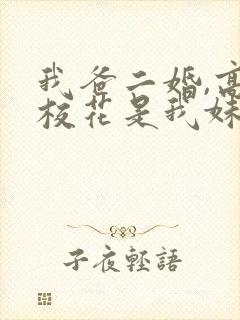 我爸二婚,高
校花是我妹
子夜轻語